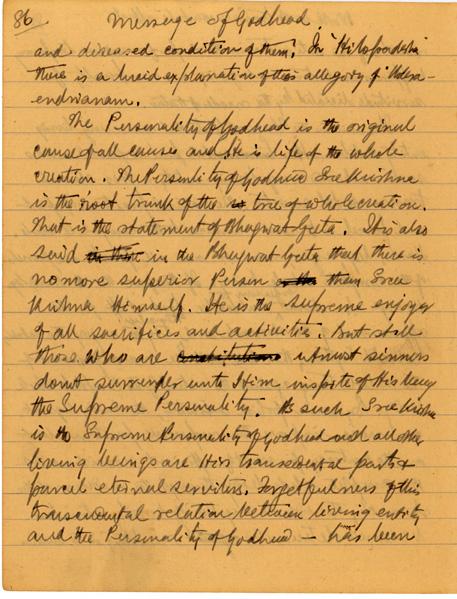 86
Message of Godhead.
and diseased condition of them. In 'Hitopodesha
there is a lucid explanation of this allegory of 'Udara-
endrianam.
The Personality of Godhead is the original
cause of all causes and He is life of the whole
creation. The Personality of Godhead Sree Krishna
is the root trunk of the tree of whole creation.
That is the statement of Bhagwat Geeta. It is also
said in the Bhagwat Geeta that there is
no more superior Person than Sree
Krishna Himself. He is the supreme enjoyer
of all sacrifices and activities. But still
those who are utmost sinners
do not surrender unto Him inspite of His being
the Supreme Personality. As such Sree Krishna
is the Supreme Personality of Godhead and all other
living beings are His transcendental parts &
parcel eternal servitors. Forgetfulness of this
transcendental relation between living entity
and the Personality of Godhead — has been